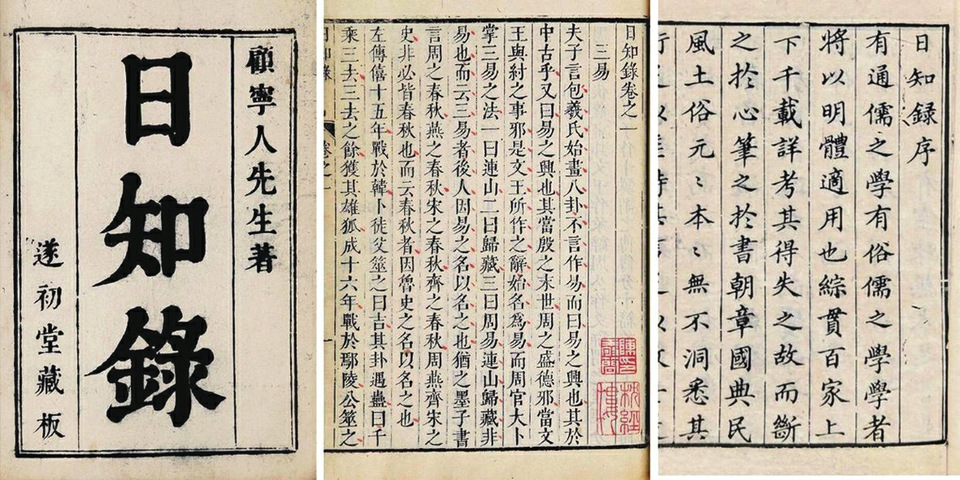 顧寧人先生著
日知錄
遂初堂藏板
日知錄卷之一
三易
夫子言包羲氏始畫八卦不言作易而曰易之興也其於
中古乎又曰易之興也其當殷之末世周之盛德邪當文
王與紂之事邪是文王所作之辭始名為易而周官大卜
掌三易之法一曰連山二曰歸藏三曰周易連山歸藏非
易也而云三易者後人因易之名以名之也猶之墨子書
言周之春秋燕之春秋宋之春秋齊之春秋周燕齊宋之
史非必皆春秋也而云春秋者因魯史之名以名之也
左傳僖十五年戰於韓卜徒父筮之曰吉其卦遇蠱曰千
乘三去三去之餘獲其雄狐成十六年戰於鄢陵公筮之
日知錄 卷之一 一
日知錄序
有通儒之學有俗儒之學學者
將以明體適用也綜貫百家上
下千載詳考其得失之故而斷
之於心筆之於書朝章國典民
風土俗元〻本〻無不洞悉其